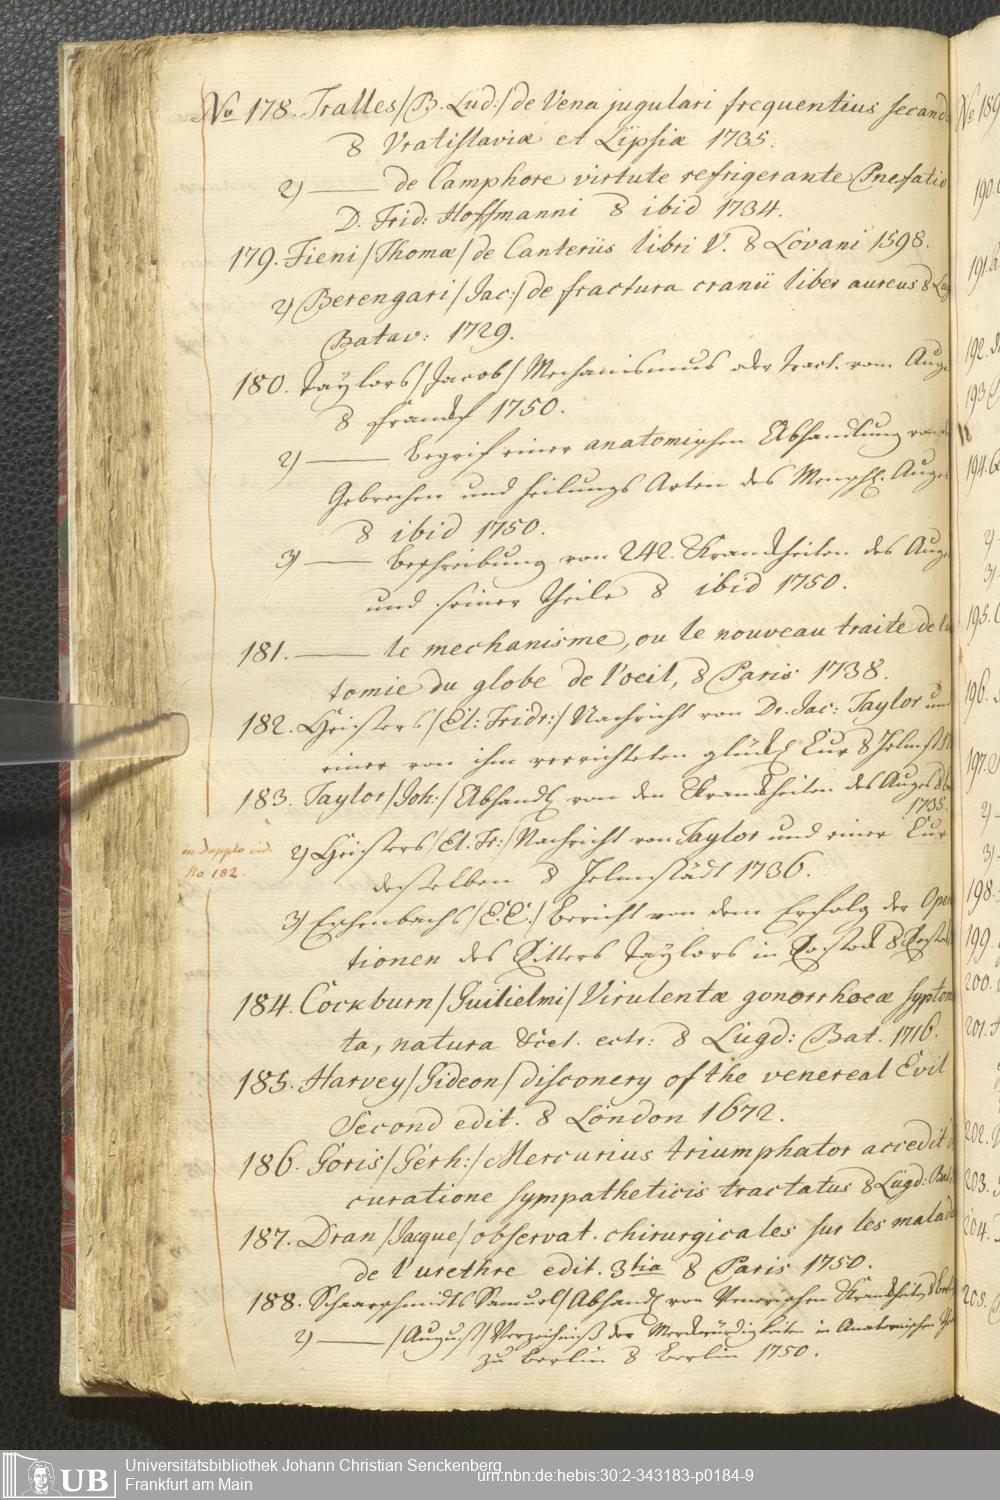 No 178. Tralles /B. Lud:/ de Vena jugulari frequentius secand
8 Vratislaviæ et Lipsiæ 1735.
2) —— de Camphoræ virtute refrigerante Præfatio
D. Frid: Hoffmanni 8 ibid 1734.
179. Fieni /Thomæ/ de Cauteriis libri V. 8 Lovani 1598.
2) Berengari /Jac:/ de fractura cranii liber aureus 8 Lug
Batav: 1729.
180. Taylors /Jacob/ Mechanismus oder Tract. vom Auge
8 Franckf 1750.
2) —— Begrif einer anatomischen Abhandlung von
Gebrechen und heilungs Arten des Menschl. Auges
8 ibid 1750.
3) —— Beschreibung von 242. Kranckheiten des Auge
und seiner Theile 8 ibid 1750.
181. —— le mechanisme, ou le nouveau traite de l'
tomie du globe de l'oeil, 8 Paris 1738.
182. Heisters /El: Fridr:/ Nachricht von Dr. Jac: Taylor und
einer von ihm verrichteten glückl Cur 8 Helmst
183. Taylor /Joh:/ Abhandl von den Kranckheiten des Auges 8
1735.
in dupplo vid.
No 182.
2) Heisters /El. Fr:/ Nachricht von Taylor und einer Cur
desselben 8 Helmstädt 1736.
3) Eschenbachs /C. E./ Bericht von dem Erfolg der Opera
tionen des Ritters Taylors in Rostock 8 Rostock
184. Cockburn /Guilielmi/ Virulentæ gonorrhoeæ syptom
ta, natura &cet. 8 Lugd: Bat. 1716.
185. Harvey /Gideon/ discovery of the venereal Evil
Second edit. 8 London 1672.
186. Goris /Gerh:/ Mercurius triumphator accedit
curatione sympatheticis tractatus 8 Lugd: Bat
187. Dran /Jaque/ observat. chirurgicales sur les malad
de l'urethre edit. 3tia 8 Paris 1750.
188. Schaarschmidts Samuel/ Abhandl von Venerischen Kranckheiten 8 Berl
2) —— /August/ Verzeichniß der Merckwürdigkeiten in Anatomischen
zu Berlin 8 Berlin 1750.
No 189
190.
191.
192.
193
194.
2)
3)
195.
196.
197.
2)
3)
198.
199.
200.
201.
202.
203.
204.
205.
UB
Universitätsbibliothek Johann Christian Senckenberg
Frankfurt am Main
urn:nbn:de:hebis:30:2-343183-p0184-9